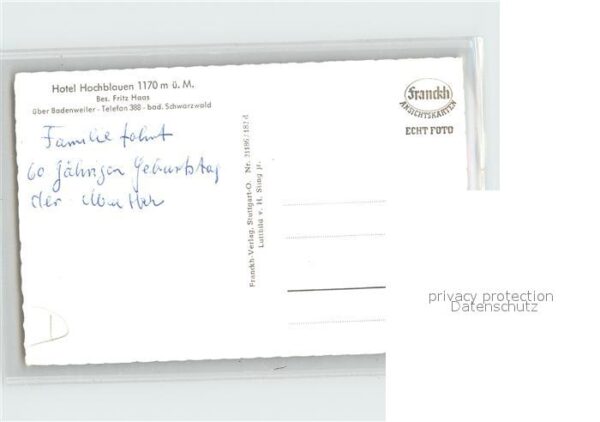 Hotel Hochblauen 1170 m ü. M.
Bes. Fritz Haas
über Badenweiler - Telefon 388 - bad. Schwarzwald
Familie fahrt
60 jährigen Geburtstag
der Mutter
Franckh-Verlag, Stuttgart-O. Nr. 21186/182 d
Luftbild v. H. Sting jr.
Franckh
ANSICHTSKARTEN
ECHT FOTO
D
privacy protection
Datenschutz